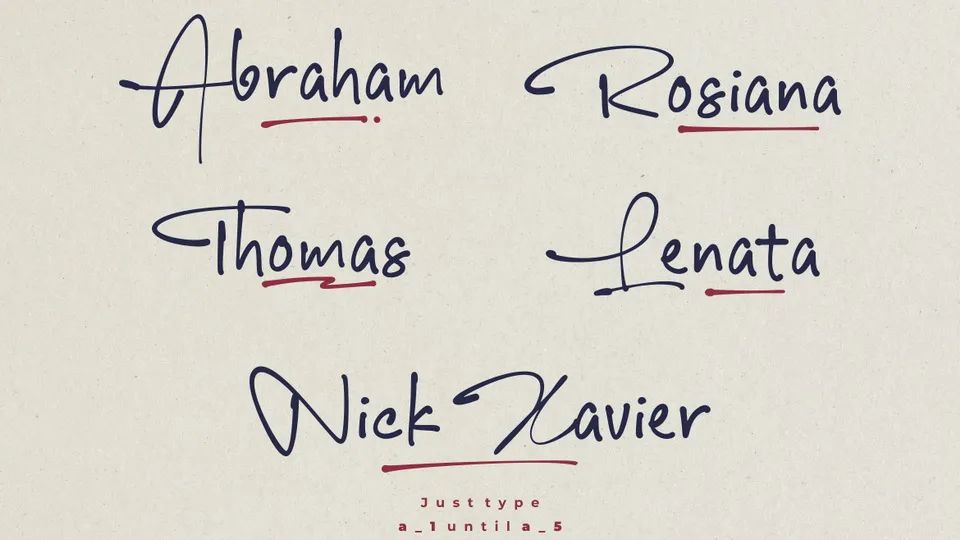 Abraham Rosiana
Thomas Lenata
Nick Xavier
Just type
a_1 until a_5